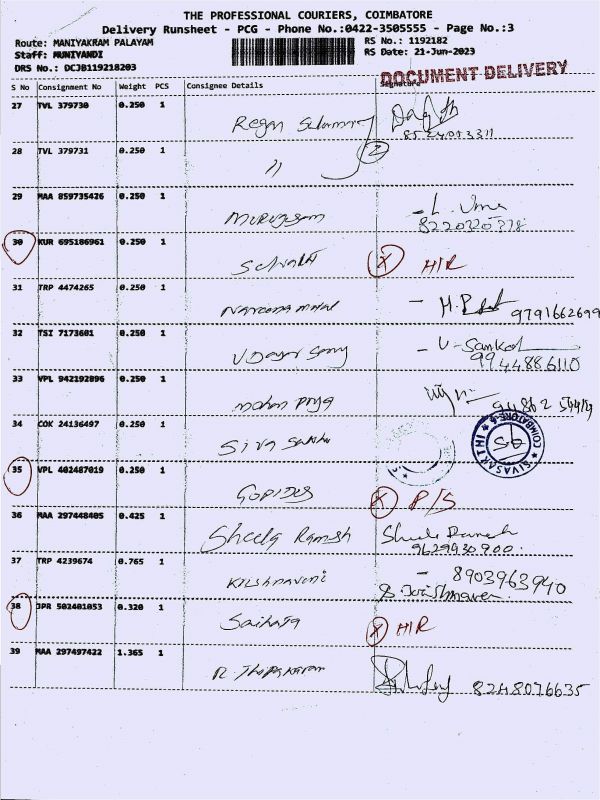 THE PROFESSIONAL COURIERS, COIMBATORE
Delivery Runsheet - PCG - Phone No.:0422-3505555 - Page No.:3
Route: MANIYAKRAM PALAYAM RS No.: 1192182
Staff: MUNIYANDI RS Date: 21-Jun-2023
DRS No.: DCJB119218203
DOCUMENT DELIVERY
S No Consignment No Weight PCS Consignee Details Signature
27 TVL 379730 0.250 1
8524013311
28 TVL 379731 0.250 1 11 2
29 MAA 859735426 0.250 1 Murugesan - L. Uma
30 KUR 695186961 0.250 1 X H/R
31 TRP 4474265 0.250 1 9791662699
32 TSI 7173601 0.250 1 Udaya Samy - U-Sankar
9944886110
33 VPL 942192896 0.250 1 mohan priya
34 COK 24136497 0.250 1 Siva
SIVASAKTHI COIMBATORE
35 VPL 402487019 0.250 1 GOPIDAS X P/S
36 MAA 297448405 0.425 1 Sheela Ramesh Sheela Ramesh
9629930900
37 TRP 4239674 0.765 1 Krishnaveni - 8903963940
38 JPR 502401053 0.320 1 X H/R
39 MAA 297497422 1.365 1 8248076635